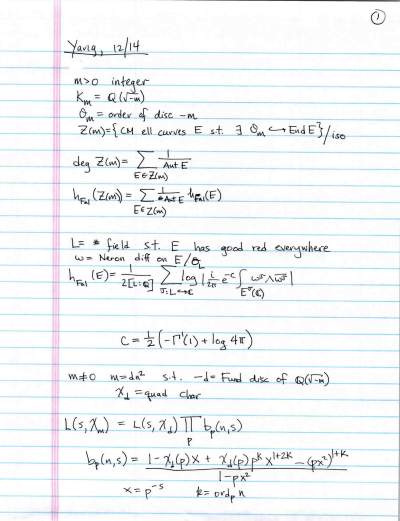 1
Yang, 12/14
m>0 integer
K_m = Q(√-m)
O_m = order of disc -m
Z(m) = {CM ell curves E s.t. ∃ O_m ↪ End E}/iso
deg Z(m) = Σ_{E∈Z(m)} 1/Aut E
h_Fal(Z(m)) = Σ_{E∈Z(m)} 1/#Aut E h_Fal(E)
L = field s.t. E has good red everywhere
ω = Neron diff on E/O_L
h_Fal(E) = 1/2[L:Q] Σ_{σ:L↪C} log |i/2π e^{-c} ∫_{E^σ(C)} ω^σ ∧ \overline{ω^σ}|
C = 1/2 (-Γ'(1) + log 4π)
m≠0 m=dn² s.t. -d = Fund disc of Q(√-m)
χ_d = quad char
L(s, χ_m) = L(s, χ_d) ∏_p b_p(n,s)
b_p(n,s) = (1 - χ_d(p)X + χ_d(p) p^k X^{1+2k} - (pX²)^{1+k}) / (1 - pX²)
X = p^{-s} k = ord_p n